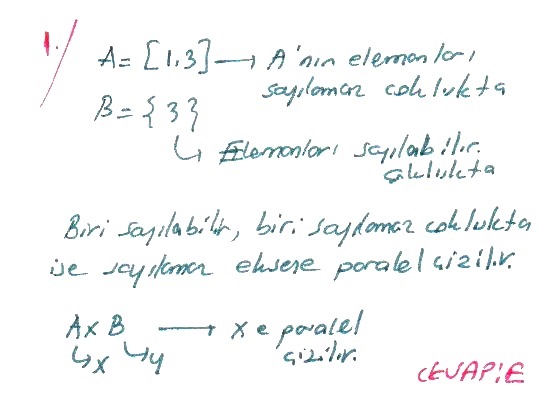 1.
A = [1,3] → A'nın elemanları
sayılamaz çoklukta
B = { 3 }
↳ Elemanları sayılabilir.
çoklukta
Biri sayılabilir, biri sayılamaz çoklukta
ise sayılamaz eksene paralel çizilir.
A x B → x e paralel
↳x ↳y çizilir.
CEVAP: E